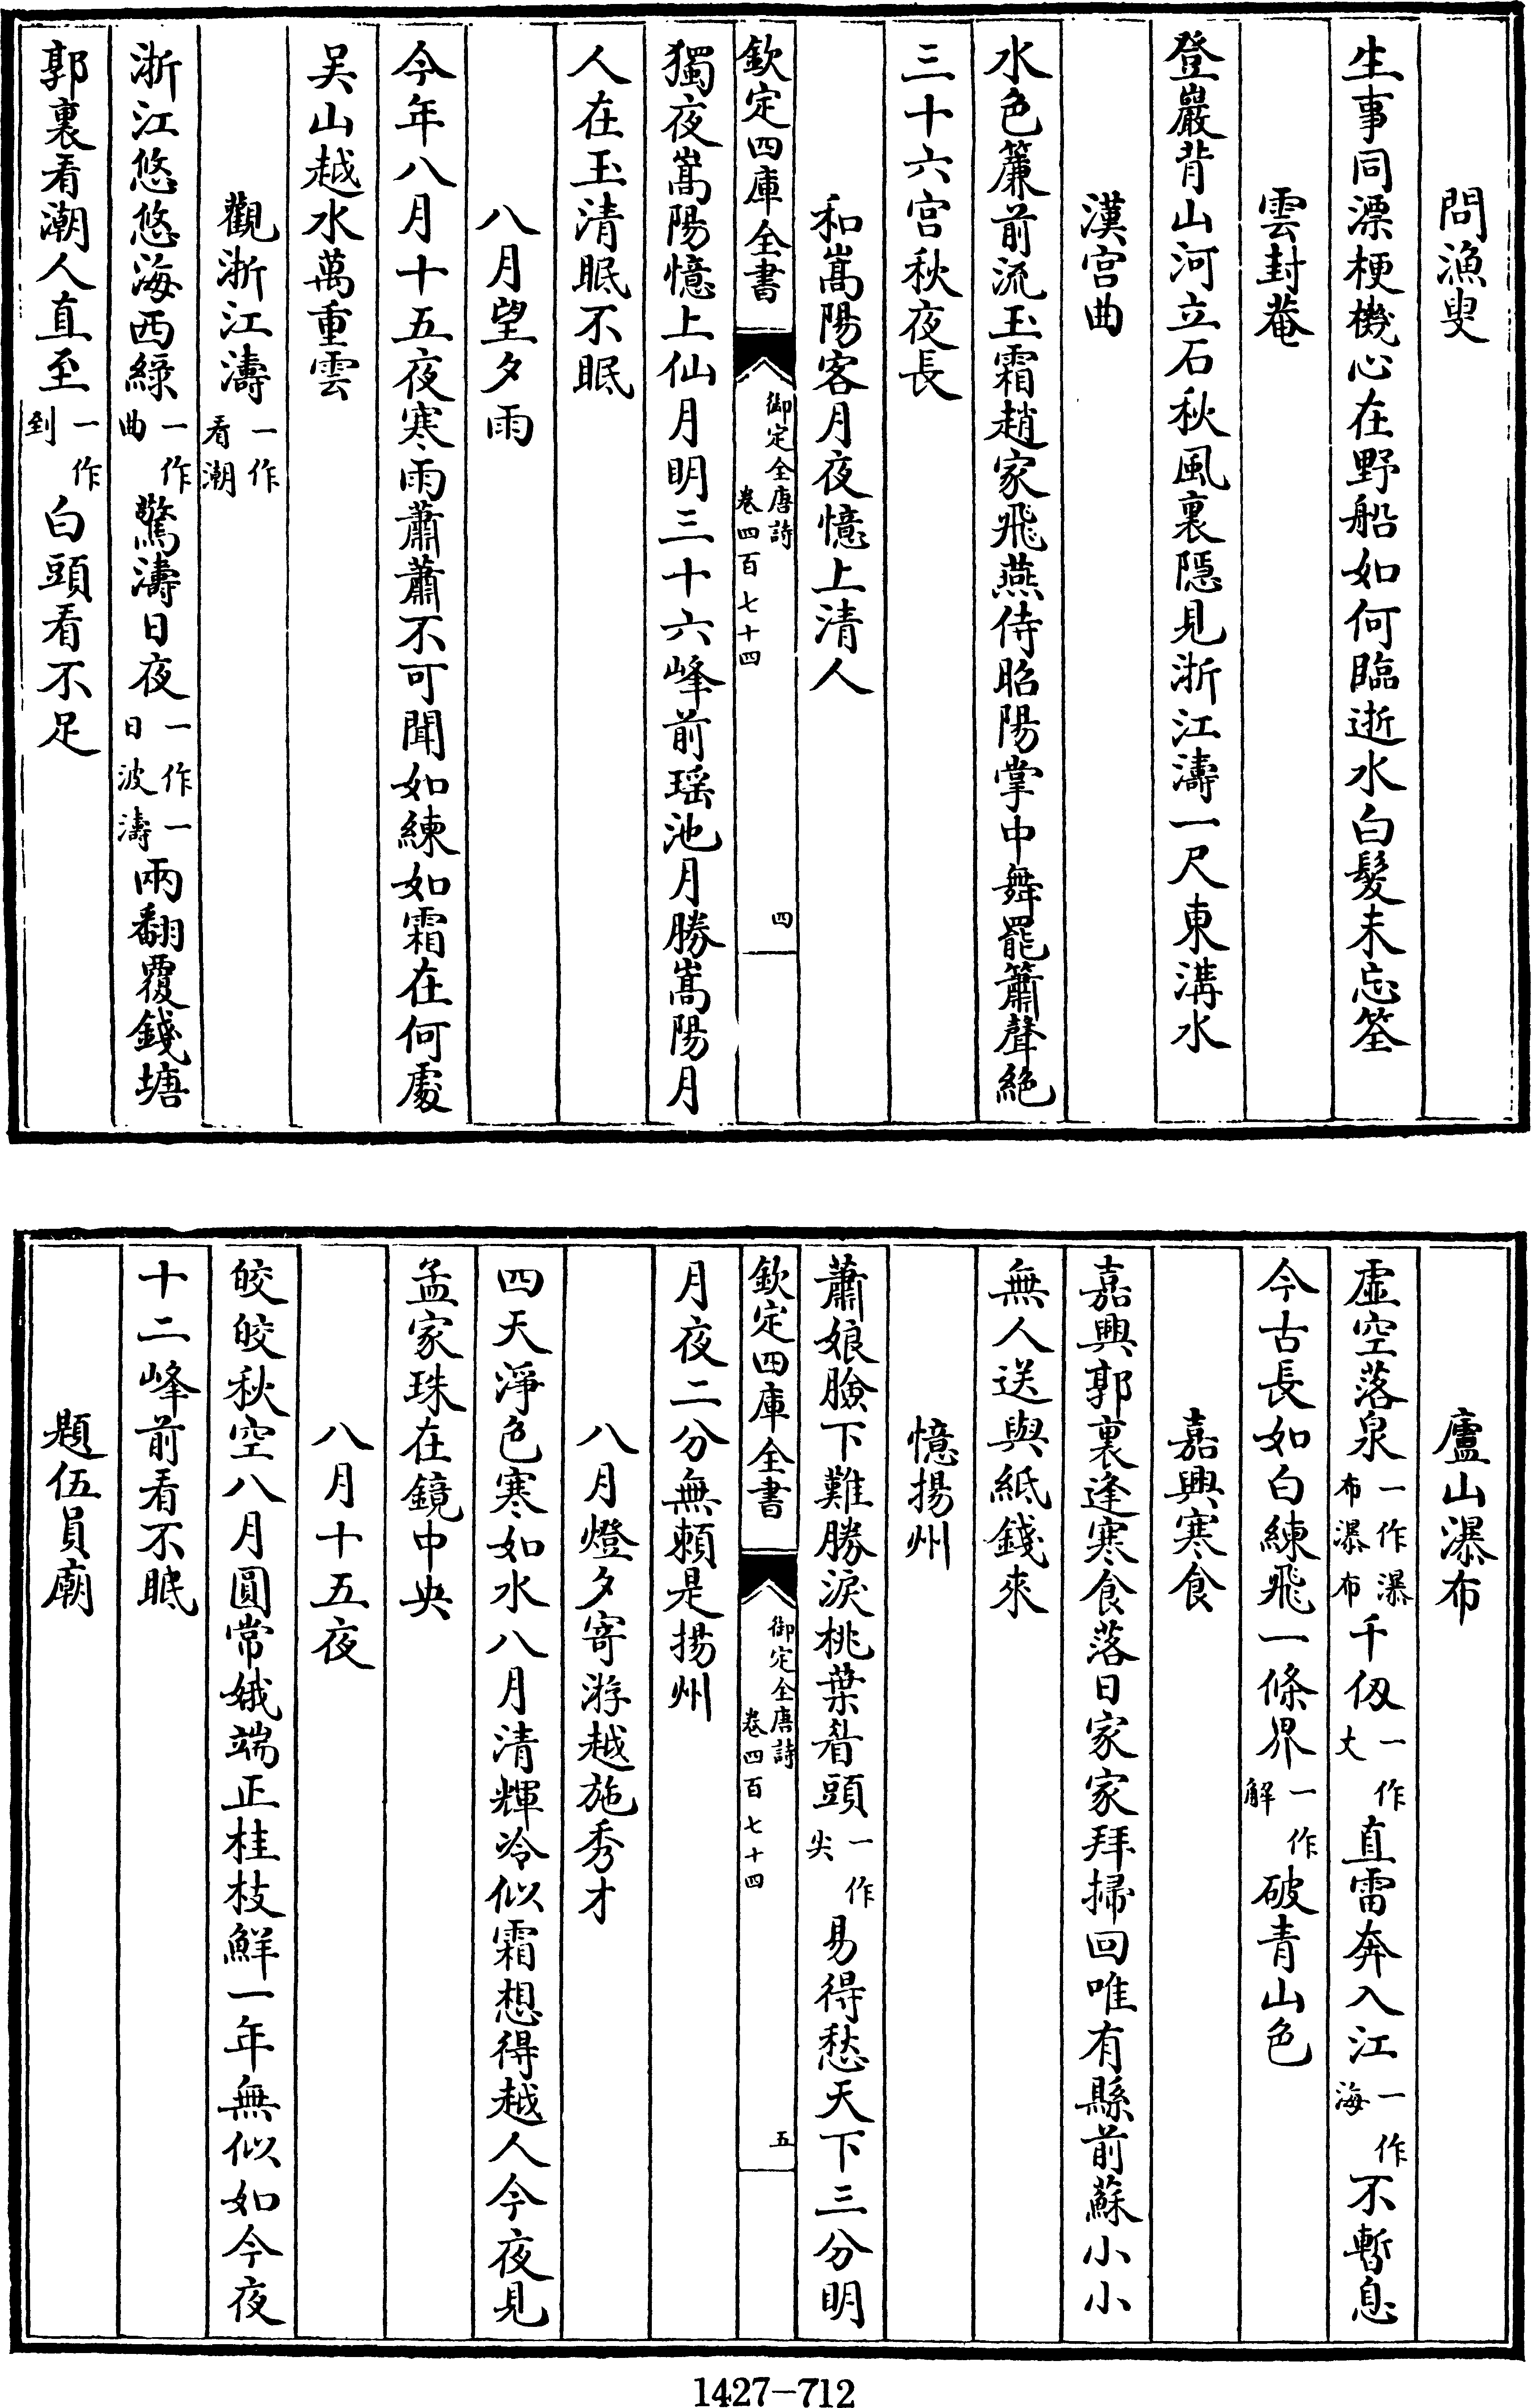 問漁叟
生事同漂梗機心在野船如何臨逝水白髮未忘筌
雲封菴
登巖背山河立石秋風裏隱見浙江濤一尺東溝水
漢宫曲
水色簾前流玉霜趙家飛燕侍昭陽掌中舞罷簫聲絶
三十六宫秋夜長
和嵩陽客月夜憶上清人
欽定四庫全書 御定全唐詩 卷四百七十四 四
獨夜嵩陽憶上仙月明三十六峰前瑶池月勝嵩陽月
人在玉清眠不眠
八月望夕雨
今年八月十五夜寒雨蕭蕭不可聞如練如霜在何處
吴山越水萬重雲
觀浙江濤一作看潮
浙江悠悠海西緑一作曲驚濤日夜一作一日波濤兩翻覆錢塘
郭裏看潮人直至一作到白頭看不足
廬山瀑布
虛空落泉一作瀑布瀑布千仭一作丈直雷奔入江一作海不暫息
今古長如白練飛一條界一作解破青山色
嘉興寒食
嘉興郭裏逢寒食落日家家拜掃回唯有縣前蘇小小
無人送與紙錢來
憶揚州
蕭娘臉下難勝淚桃葉眉頭一作尖易得愁天下三分明
欽定四庫全書 御定全唐詩 卷四百七十四 五
月夜二分無賴是揚州
八月燈夕寄游越施秀才
四天淨色寒如水八月清輝冷似霜想得越人今夜見
孟家珠在鏡中央
八月十五夜
皎皎秋空八月圓常娥端正桂枝鮮一年無似如今夜
十二峰前看不眠
題伍員廟
1427-712